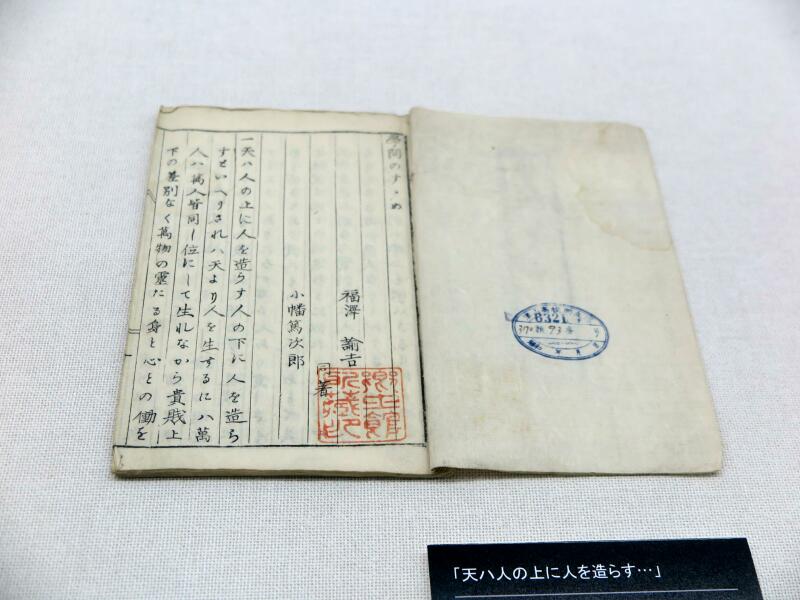 學問のすゝめ
福澤諭吉
小幡篤次郎
同著
一天ハ人の上に人を造らす人の下に人を造ら
すといへりされハ天より人を生するにハ萬
人ハ萬人皆同し位にして生れなから貴賎上
下の差別なく萬物の靈たる身と心との働を
6321
「天ハ人の上に人を造らす…」